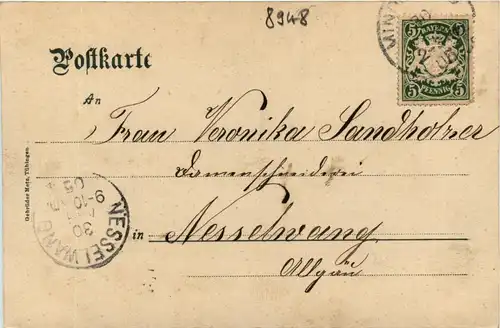 8948
Postkarte
BAYERN
5 5
PFENNIG
5 5
An
Frau Veronika Sandholzer
Damenschneiderei
in Nesselwang
Allgäu
NESSELWANG
30
9-10
05
Gebrüder Metz, Tübingen.